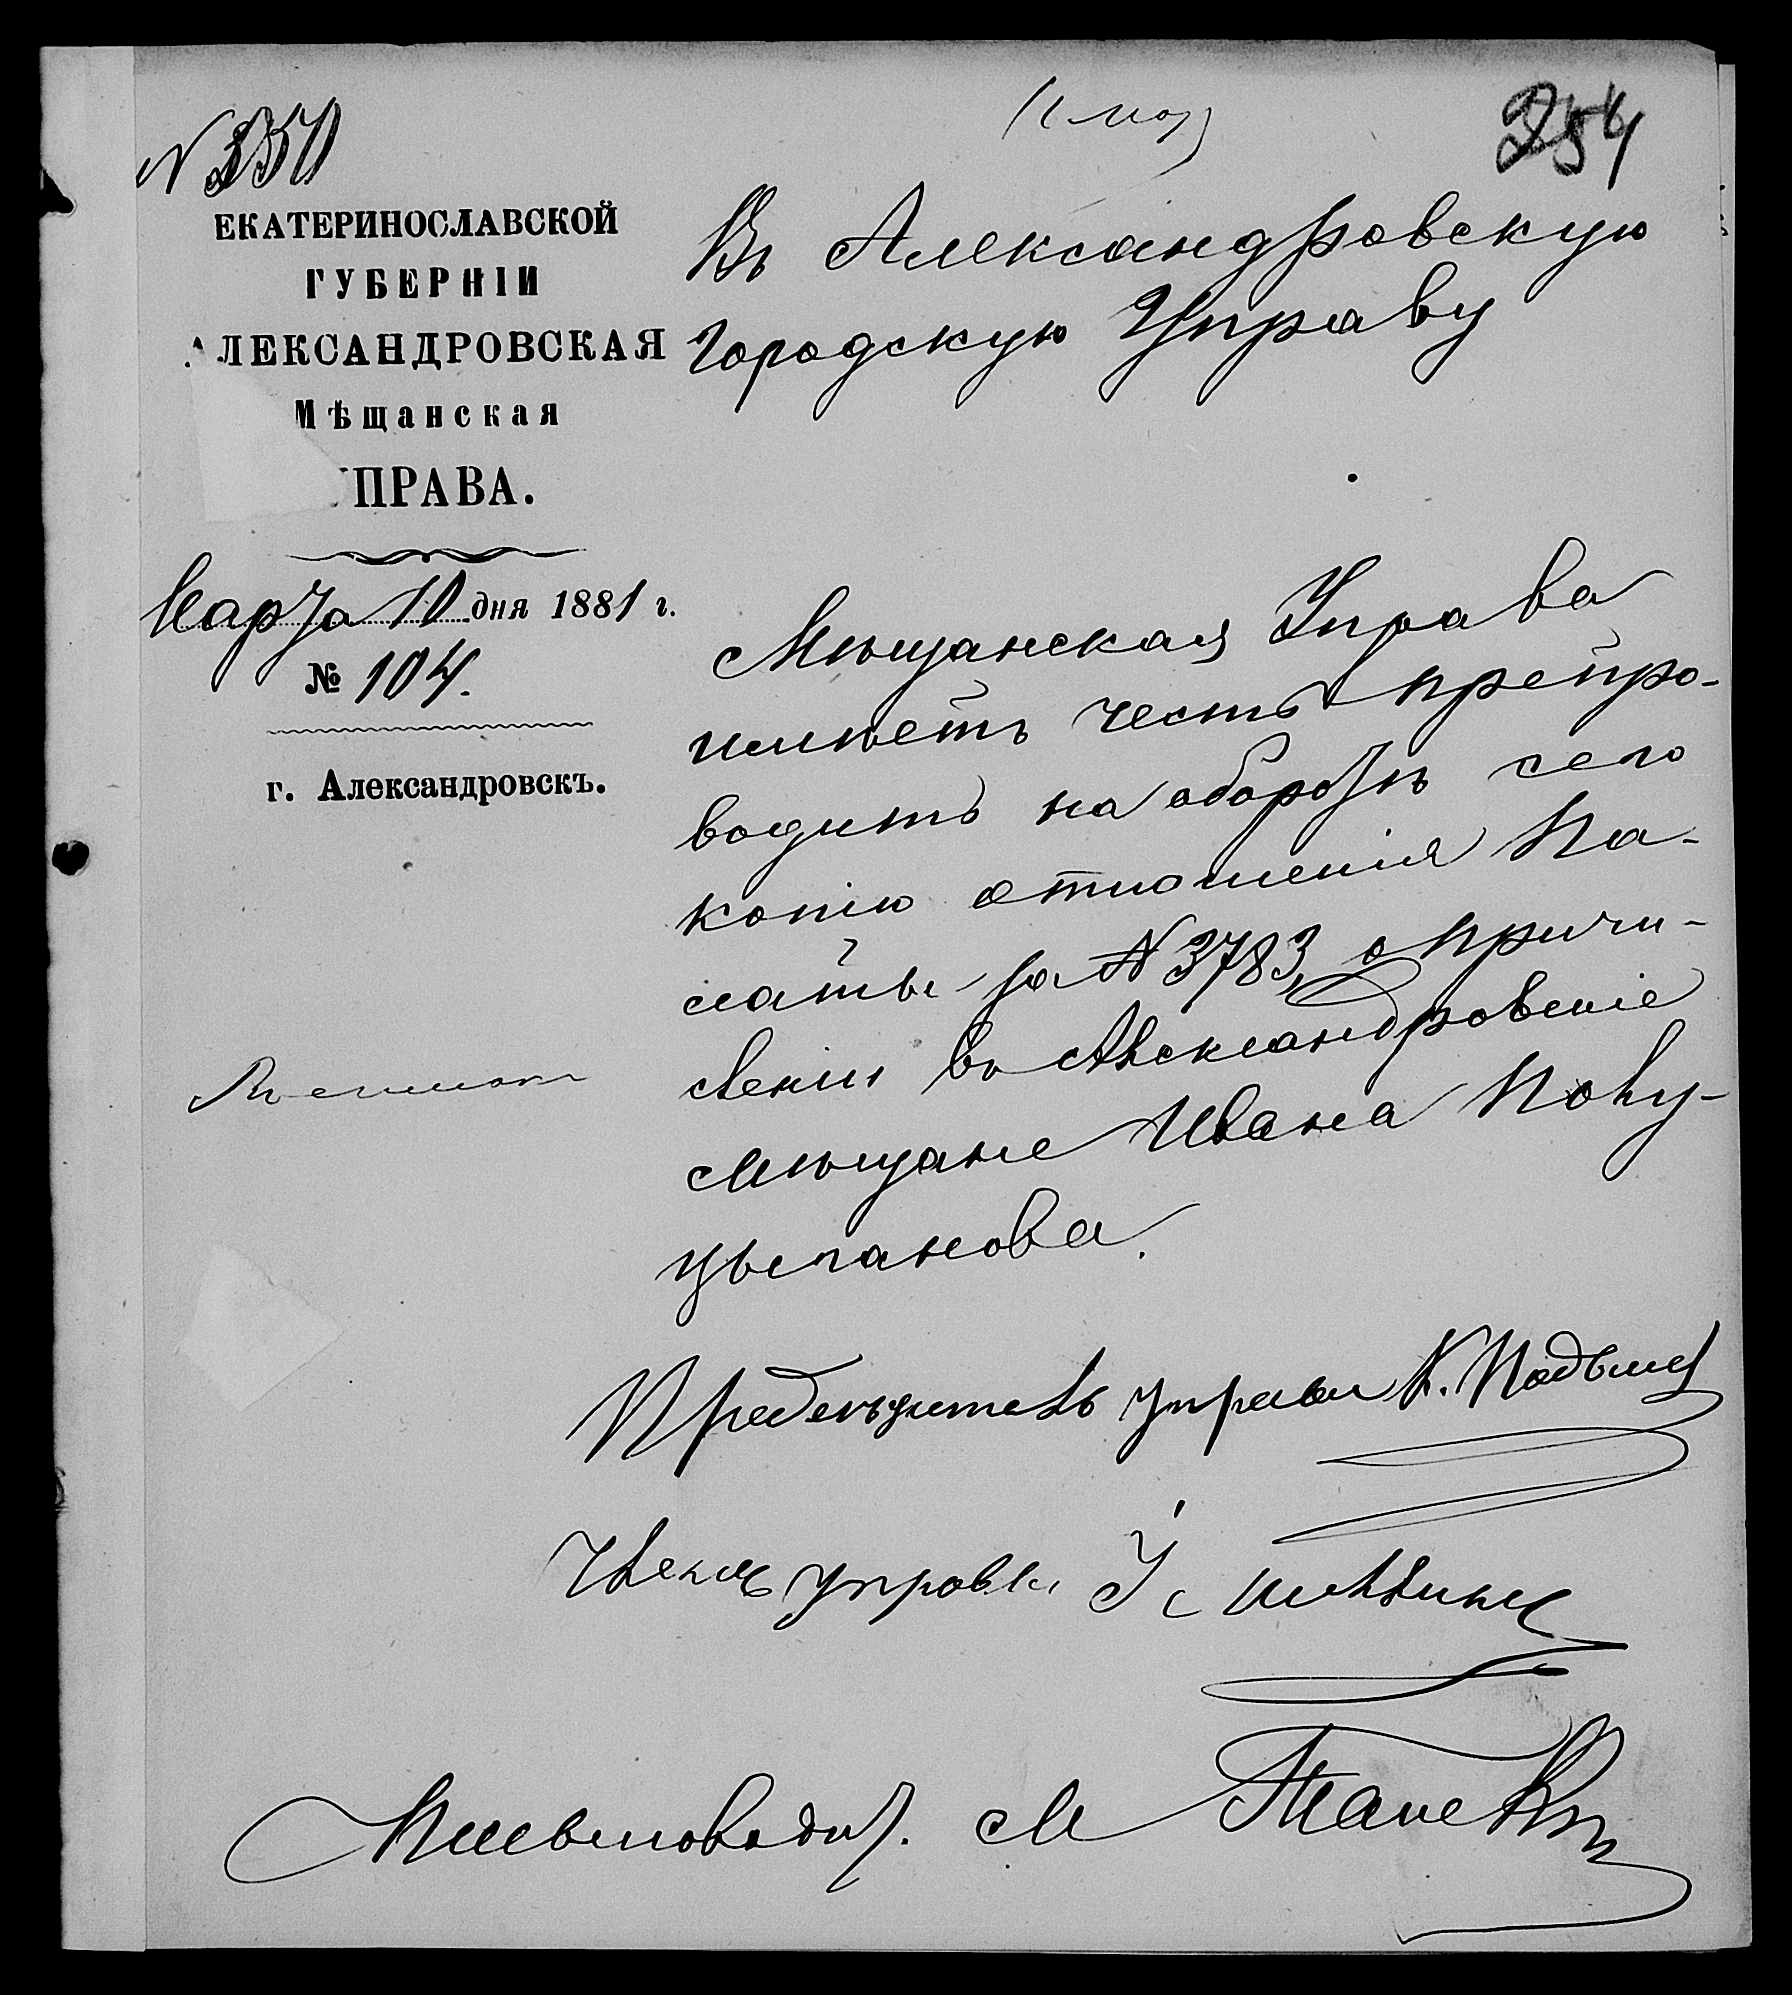 N 350
254
ЕКАТЕРИНОСЛАВСКОЙ
ГУБЕРНІИ
АЛЕКСАНДРОВСКАЯ
Мѣщанская
УПРАВА.
Марта 10 дня 1881 г.
№ 104.
г. Александровскъ.
Въ Александровскую
Городскую Управу
Мѣщанская Управа
имѣетъ честь препро-
водить на оборотѣ сего
копію отношенія Па-
латы за N 3783, о причи-
сленіи въ Александровскіе
мѣщане Ивана Пову-
цыганова.
Предсѣдитель управы К.
Членъ управы
Письмоводит. М